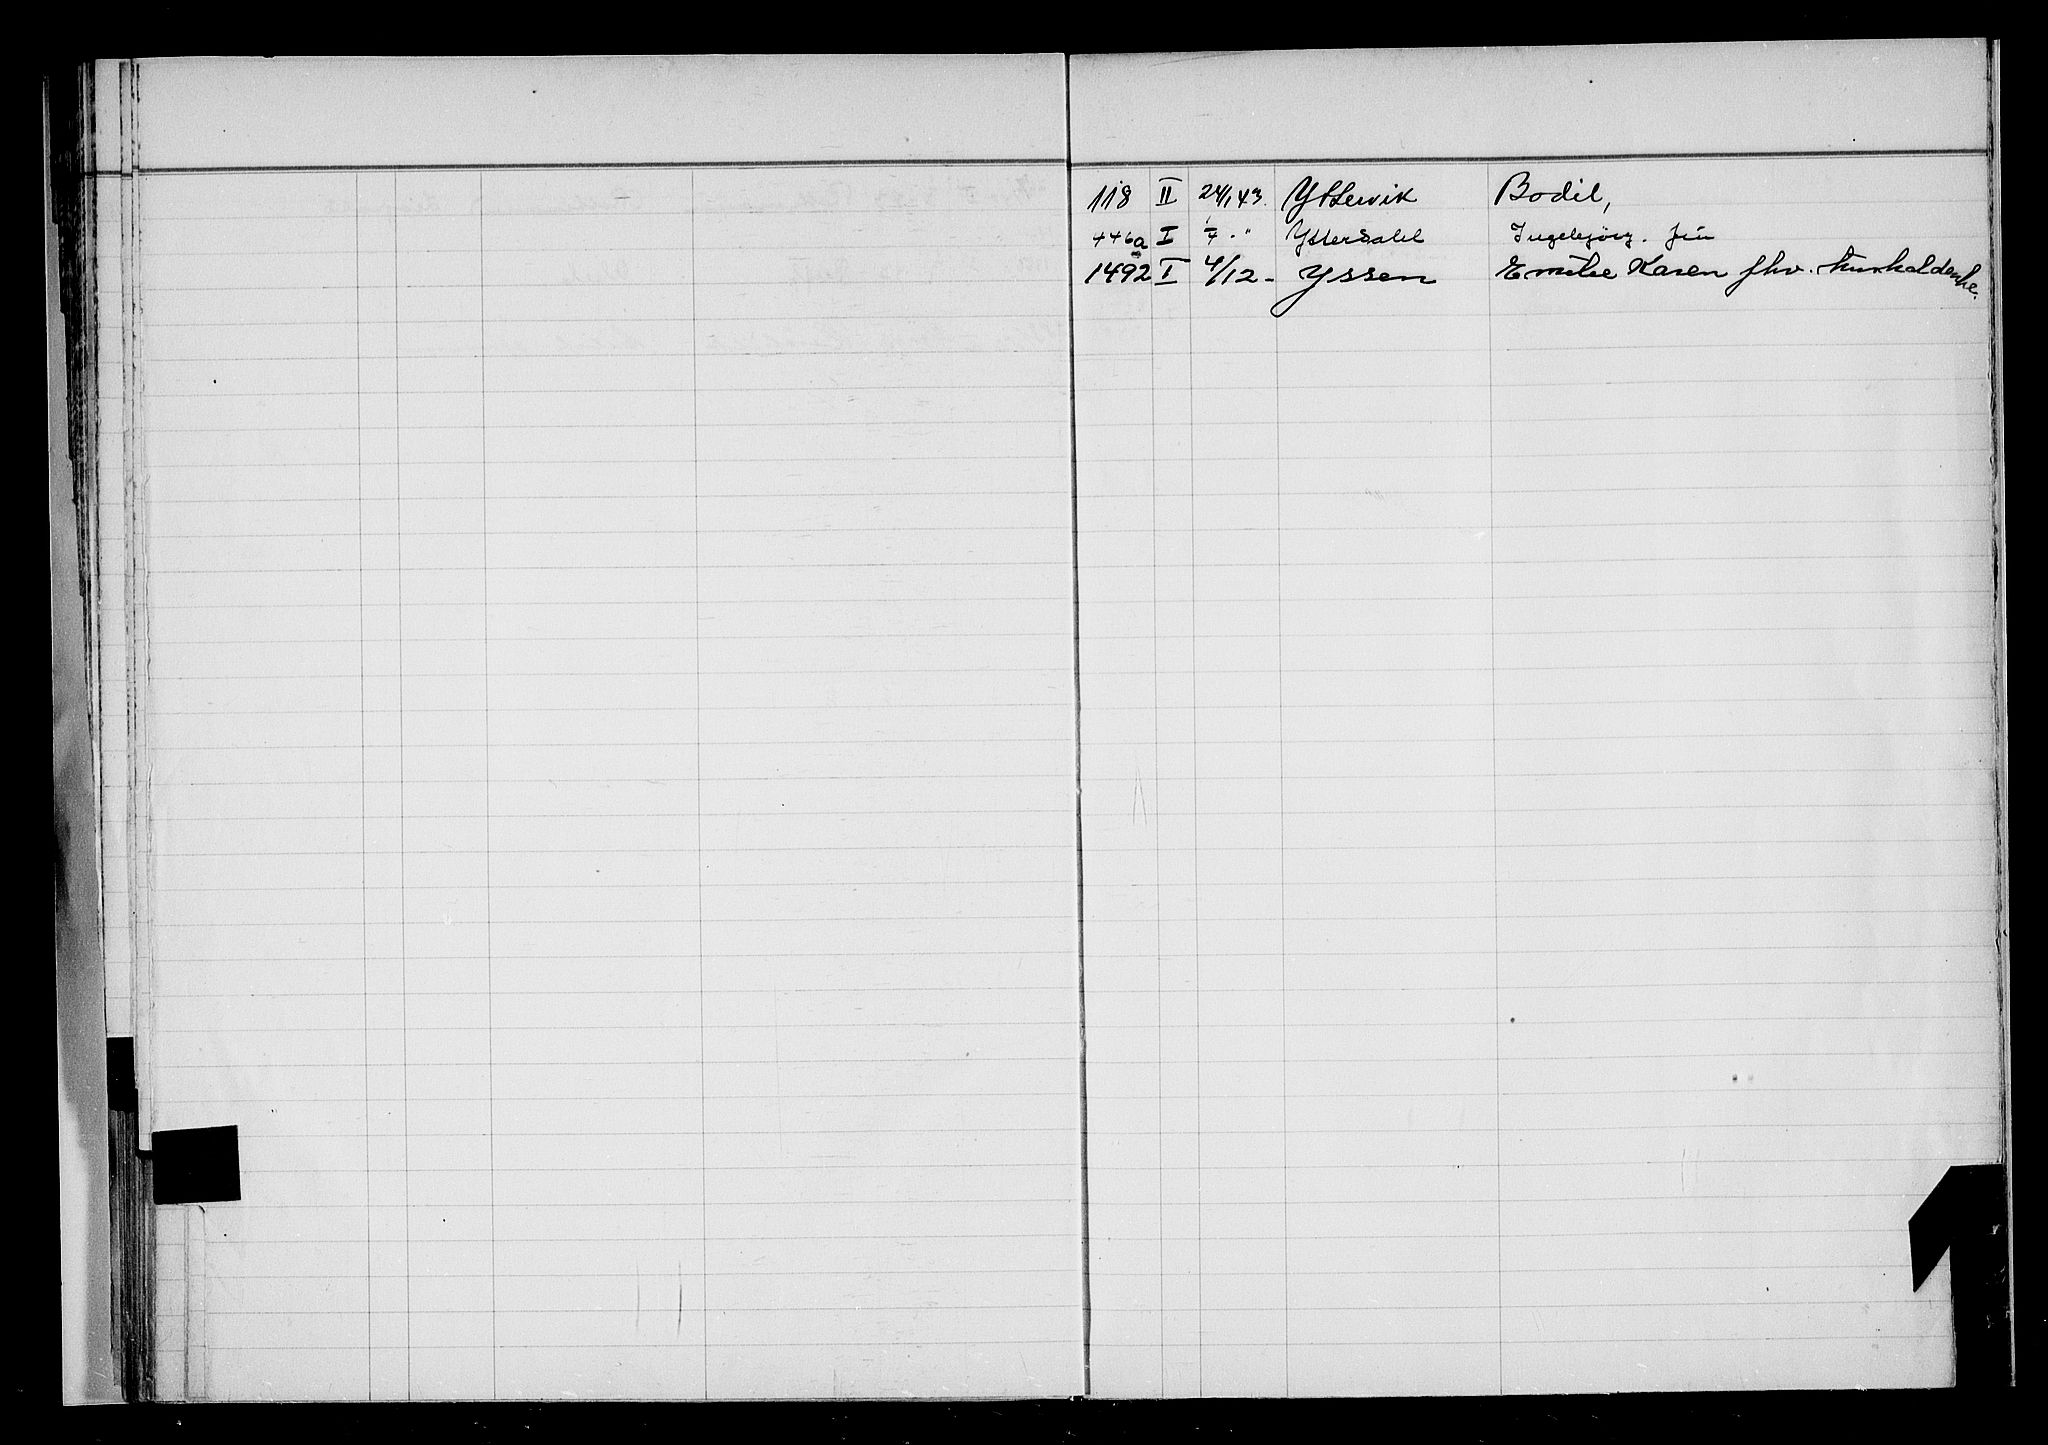 118 II 24/1 43. Yttervik Bodil,
446a I 1/4 - " Ytterdahl Ingebjörg. frü
1492 I 4/12 - Yssen Emilie Karen fhv. husholderske.